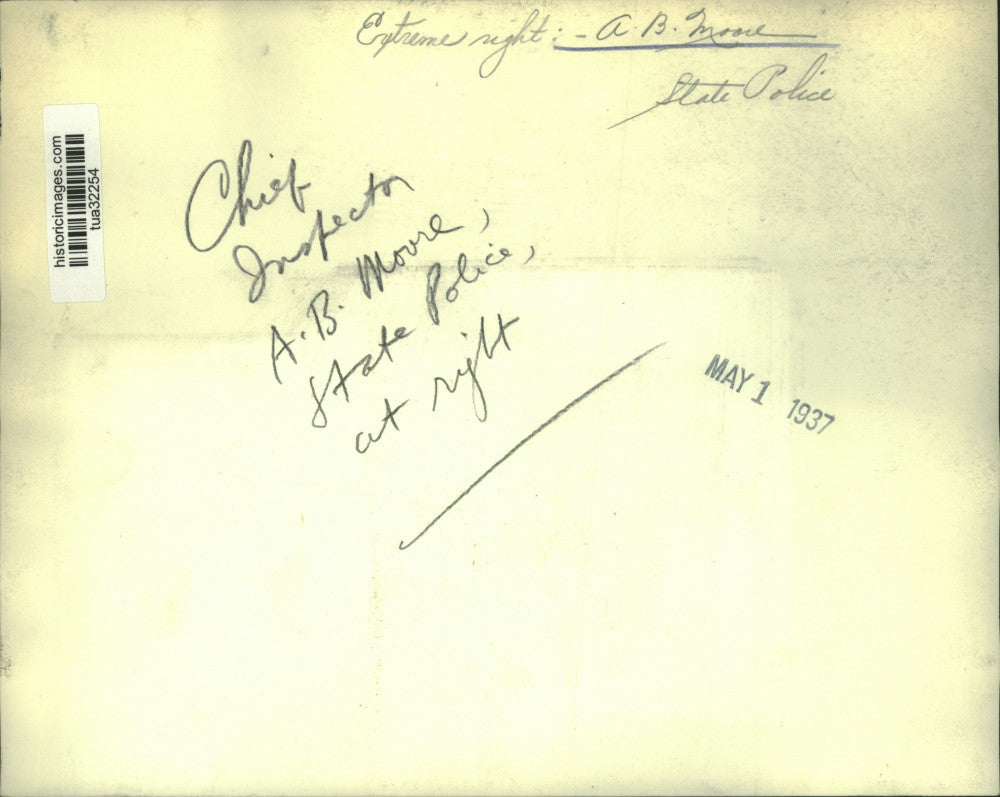 Extreme right: - A. B. Moore
State Police
historicimages.com
tua32254
Chief
Inspector
A. B. Moore,
State Police,
at right
MAY 1 1937